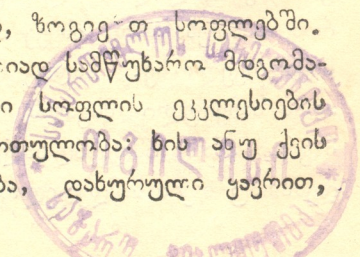 , ზოგიე თ სოფლებში.
იად სამწუხარო მდგომა-
ი სოფლის ეკკლესიების
ოთულობა: ხის ანუ ქვის
ბა, დახურული ყავრით,